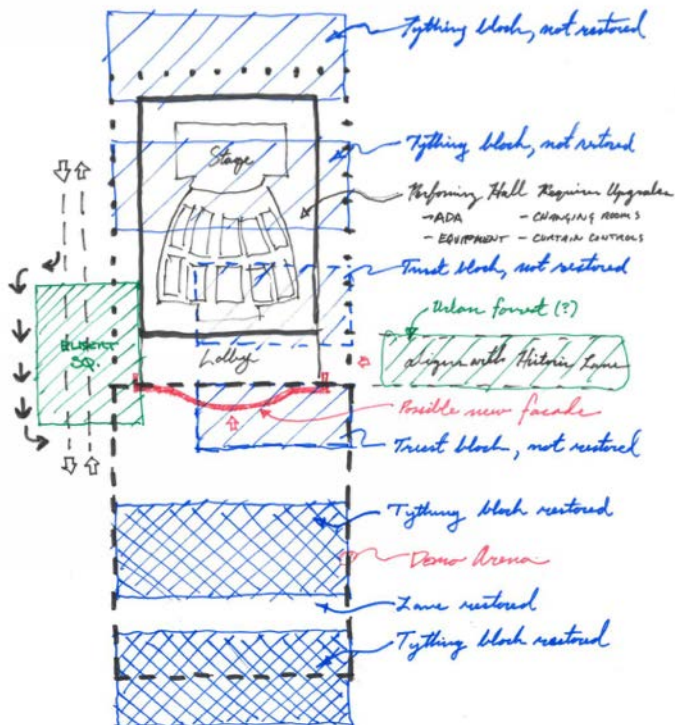 Tything block, not restored
Tything block, not restored
Stage
Performing Hall Requires Upgrades
- ADA - CHANGING ROOMS
- EQUIPMENT - CURTAIN CONTROLS
Trust block, not restored
Urban forrest (?)
SQ.
Lobby
Aligns with Historic Lane
Possible new facade
Trust block, not restored
Tything block restored
Demo Arena
Lane restored
Tything block restored